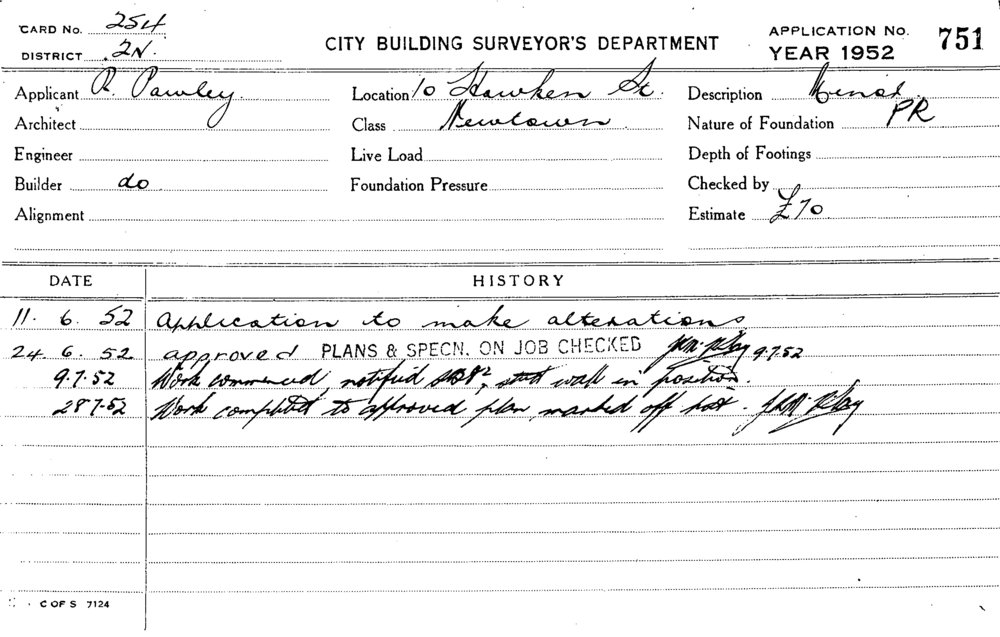 CARD No. 254
DISTRICT 2N.
CITY BUILDING SURVEYOR'S DEPARTMENT
APPLICATION No. 751
YEAR 1952
Applicant R. Pawley. Location 10 Hawken St. Description Minor
Architect Class Newtown Nature of Foundation PR
Engineer Live Load Depth of Footings
Builder do Foundation Pressure Checked by
Alignment Estimate £70
DATE HISTORY
11. 6. 52 Application to make alterations
24. 6. 52 approved PLANS & SPECN. ON JOB CHECKED 9.7.52
9.7.52 Work commenced, notified wall in position.
28 7.52 Work completed to approved plan, marked off
C OF S 7124